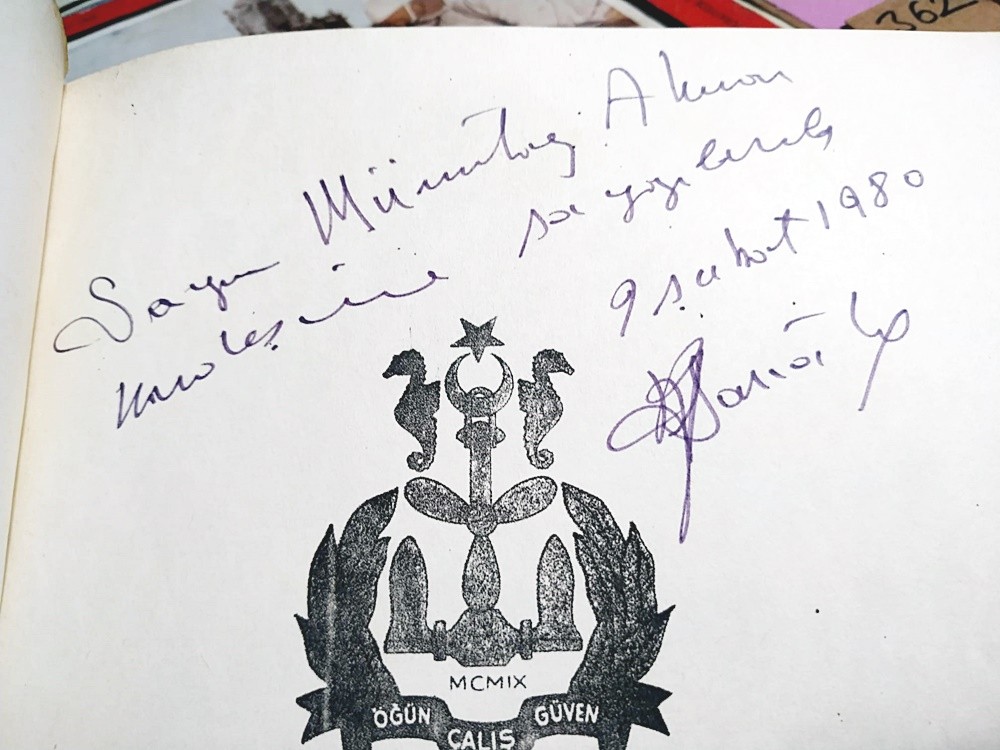 362
Sayın Mümtaz Akman
kardeşime saygılarla
9 şubat 1980
MCMIX
ÖĞÜN
ÇALIŞ
GÜVEN